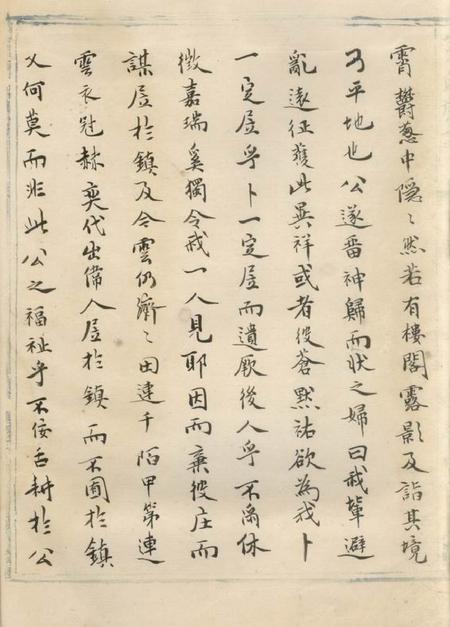 霄欝葱中隠〻然若有樓閣露影及詣其境
乃平地也公遂畱神歸而状之婦曰我輩避
亂遠征獲此異祥或者彼蒼默祐欲為我卜
一定居乎卜一定居而遺厥後人乎不爾休
徴嘉瑞奚獨令我一人見耶因而棄彼庄而
謀居於鎮及今雲仍濟〻田連千陌甲第連
雲衣冠赫奕代出偉人居於鎮而不囿於鎮
又何莫而非此公之福祉乎不佞舌耕於公